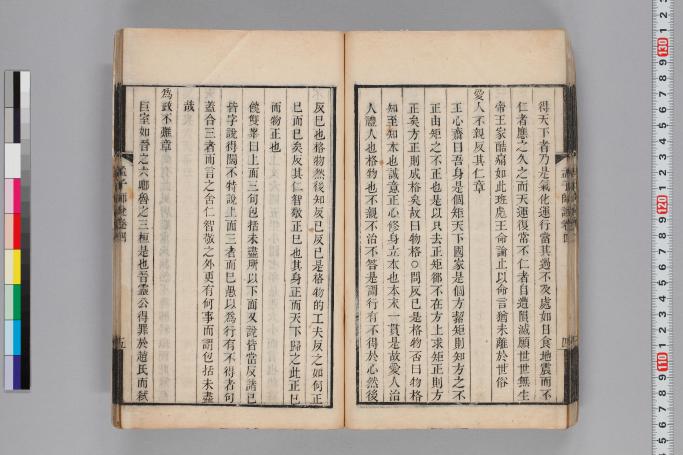 得天下者乃是氣化運行當其過不及處如日食地震而不
仁者應之久之而天運復常不仁者自遭隕滅願世世無生
帝王家酷痛如此班彪王命論止以命言猶未離於世俗
愛人不親反其仁章
王心齋曰吾身是個矩天下國家是個方絜矩則知方之不
正由矩之不正也是以只去正矩卻不在方上求矩正則方
正矣方正則成格矣故曰物格○問反已是格物否曰物格
知至知本也誠意正心修身立本也本末一貫是故愛人治
人禮人也格物也不親不治不答是謂行有不得於心然後
反已也格物然後知反已反已是格物的工夫反之如何正
已而已矣反其仁智敬正已也其身正而天下歸之此正已
而物正也
饒雙峯曰上面三句包括未盡所以下面又說皆當反諸已
皆字說得闊不特說上面三者而已愚以為行有不得者句
蓋合三者而言之舍仁智敬之外更有何事而謂包括未盡
哉
為政不難章
巨室如晉之六卿魯之三桓是也晉靈公得罪於趙氏而弒
孟子師說卷四
五